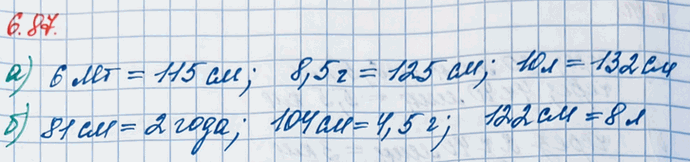 6.87.
а) 6 лет = 115 см; 8,5 г = 125 см; 10 л = 132 см
б) 81 см = 2 года; 104 см = 4,5 г; 122 см = 8 л